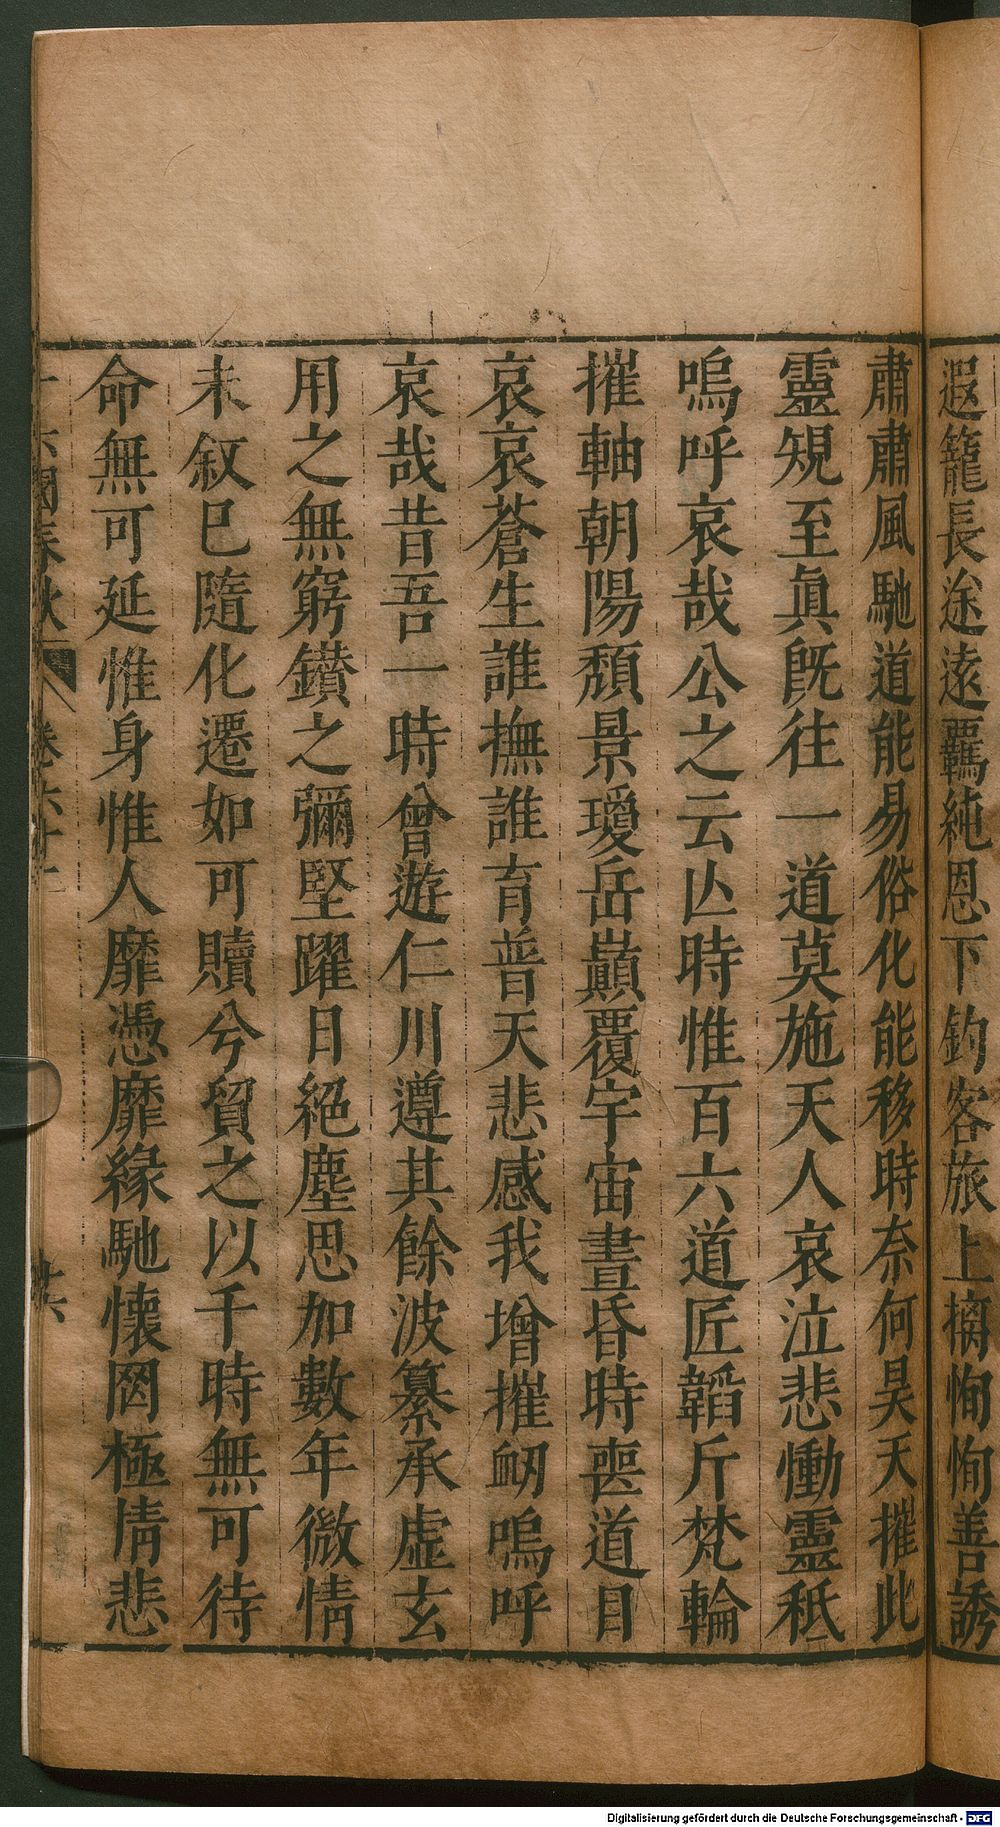 遐籠長途遠羈純恩下鈞客旅上摛恂恂善誘
肅肅風馳道能易俗化能移時奈何昊天摧此
靈䂓至眞旣往一道莫施天人哀泣悲慟靈秪
嗚呼哀哉公之云亾時惟百六道匠韜斤梵輪
摧軸朝陽頽景瓊岳巔覆宇宙晝昏時喪道目
哀哀蒼生誰撫誰育普天悲感我增摧衂嗚呼
哀哉昔吾一時曾遊仁川遵其餘波纂承虛玄
用之無窮鑚之彌堅躍日絕塵思加數年微情
未叙巳隨化遷如可贖兮貿之以千時無可待
命無可延惟身惟人靡憑靡緣馳懷罔極情悲
十六國春秋 卷六十二 廿六
Digitalisierung gefördert durch die Deutsche Forschungsgemeinschaft - DFG